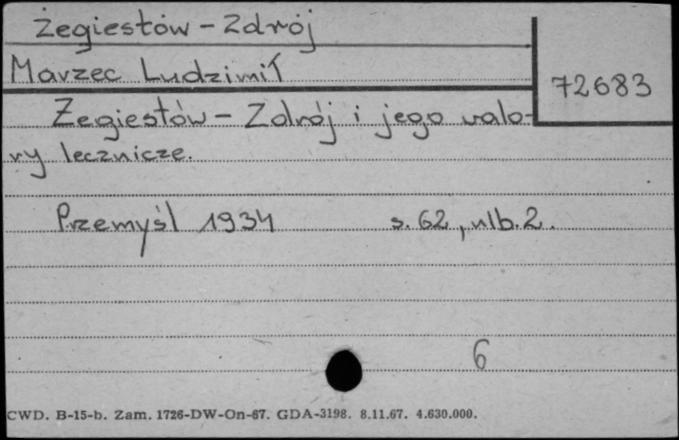 Żegiestów - Zdrój
Marzec Ludzimił
72683
Żegiestów - Zdrój i jego walo-
ry lecznicze.
Przemyśl 1934 s. 62, nlb. 2.
6
CWD. B-15-b. Zam. 1726-DW-On-67. GDA-3198. 8.11.67. 4.630.000.